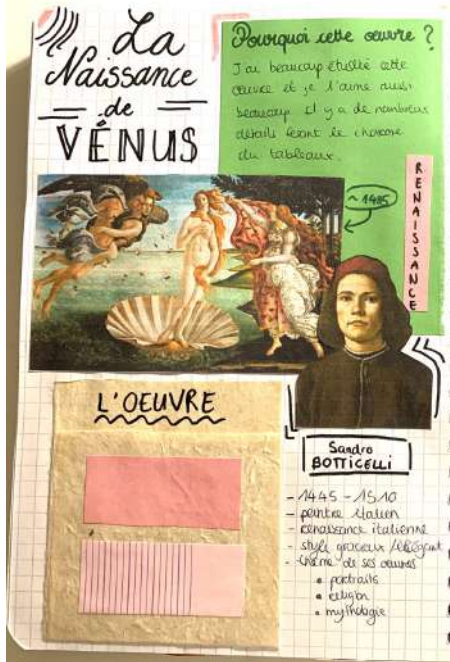 La
Naissance
de
VÉNUS
Pourquoi cette œuvre ?
J'ai beaucoup étudié cette
œuvre et je l'aime aussi
beaucoup il y a de nombreux
détails le charme
du tableaux.
RENAISSANCE
~ 1485
L'OEUVRE
Sandro
BOTTICELLI
- 1445 - 1510
- peintre italien
- renaissance italienne
- style gracieux / élégant
- thème de ses œuvres
• portraits
• religion
• mythologie